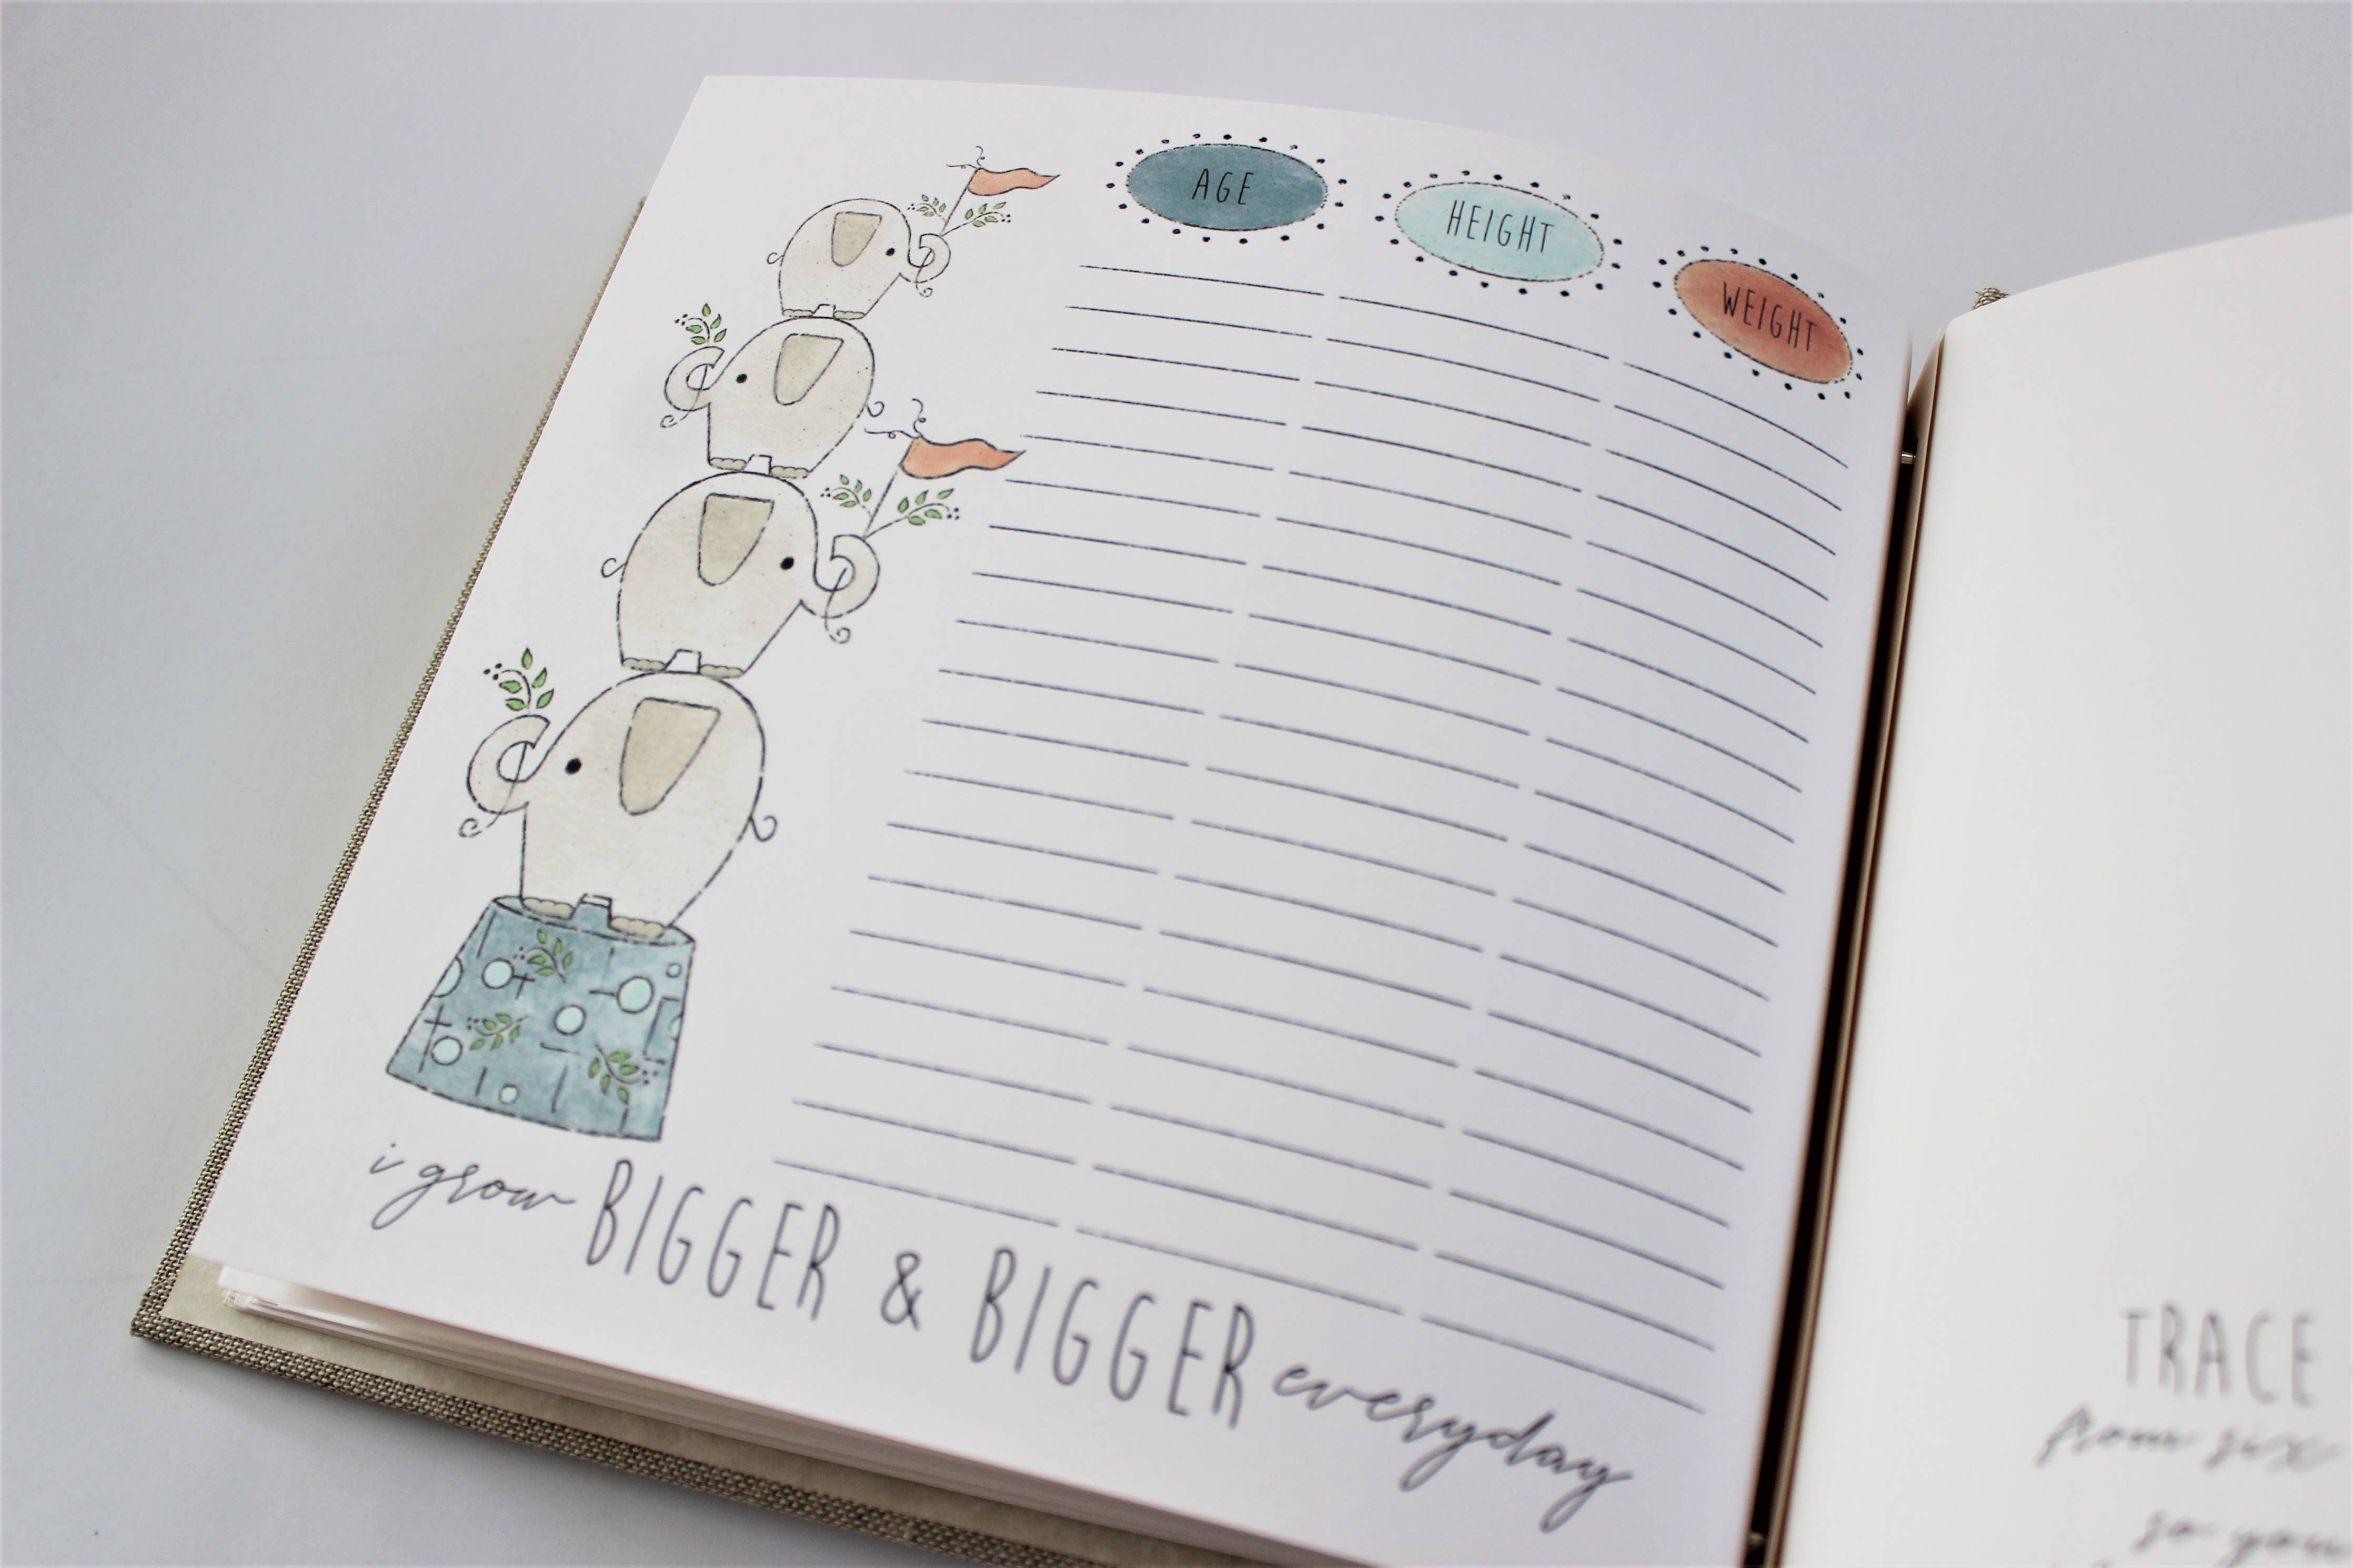 AGE HEIGHT WEIGHT
i grow BIGGER & BIGGER everyday
TRACE
from six
so your